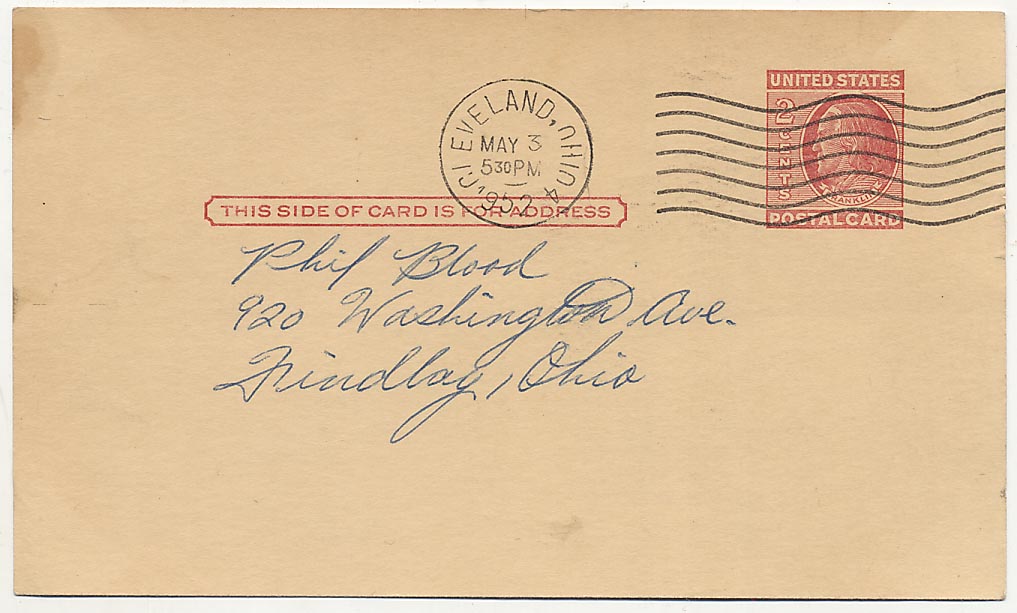 UNITED STATES
2 CENTS
FRANKLIN
POSTAL CARD
CLEVELAND, OHIO 4
MAY 3
530PM
1952
THIS SIDE OF CARD IS FOR ADDRESS
Phil Blood
920 Washington Ave.
Findlay, Ohio